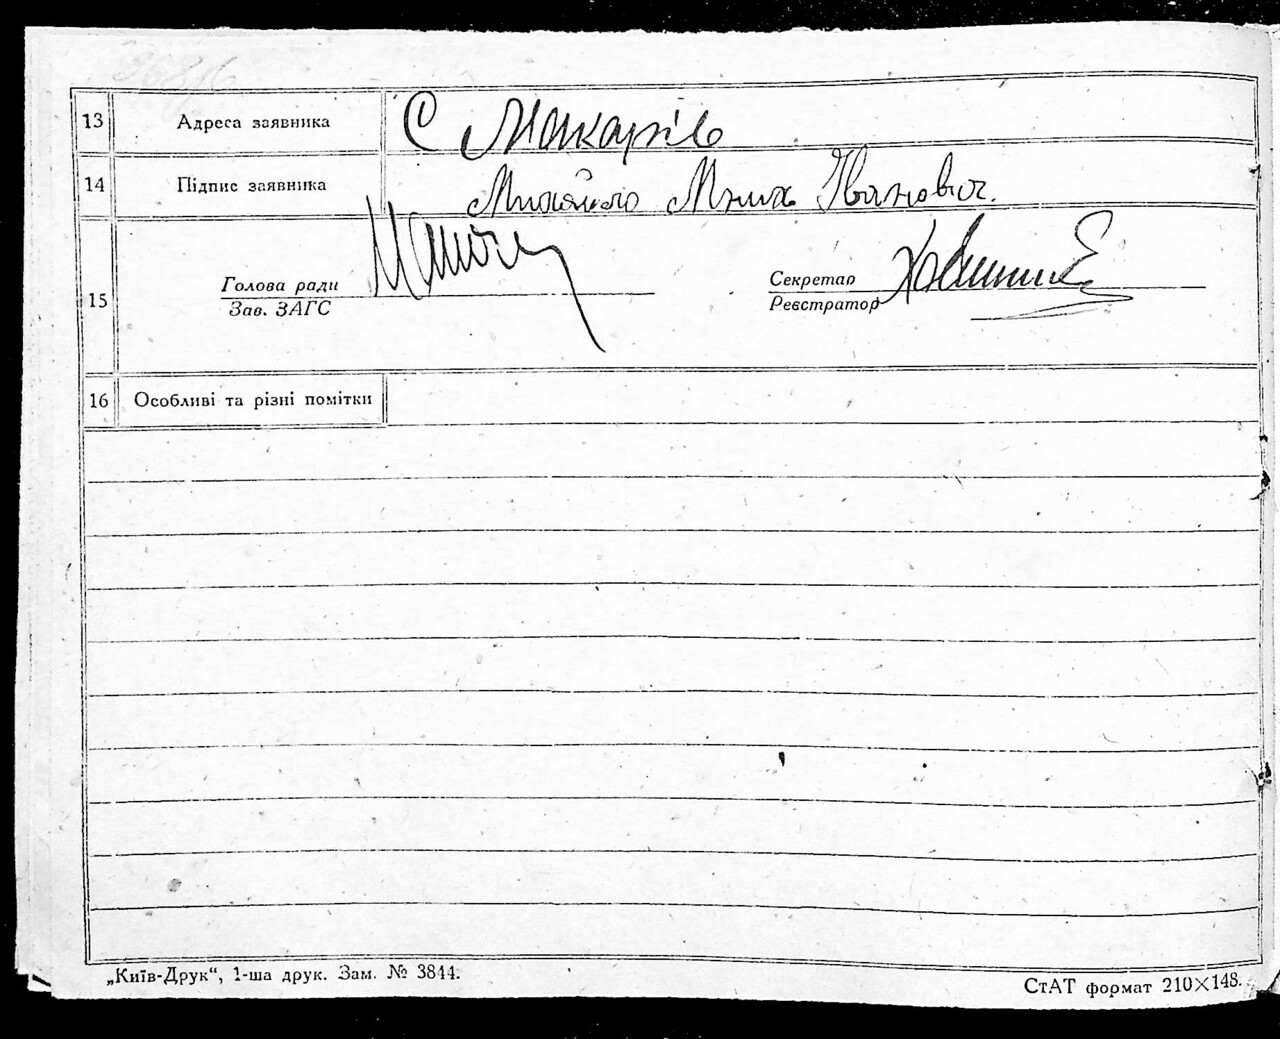 13 Адреса заявника С Макарів
14 Підпис заявника Іванович.
Голова ради Секретар
15 Зав. ЗАГС Реєстратор
16 Особливі та різні помітки
„Київ-Друк“, 1-ша друк. Зам. № 3844. СтАТ формат 210×148.